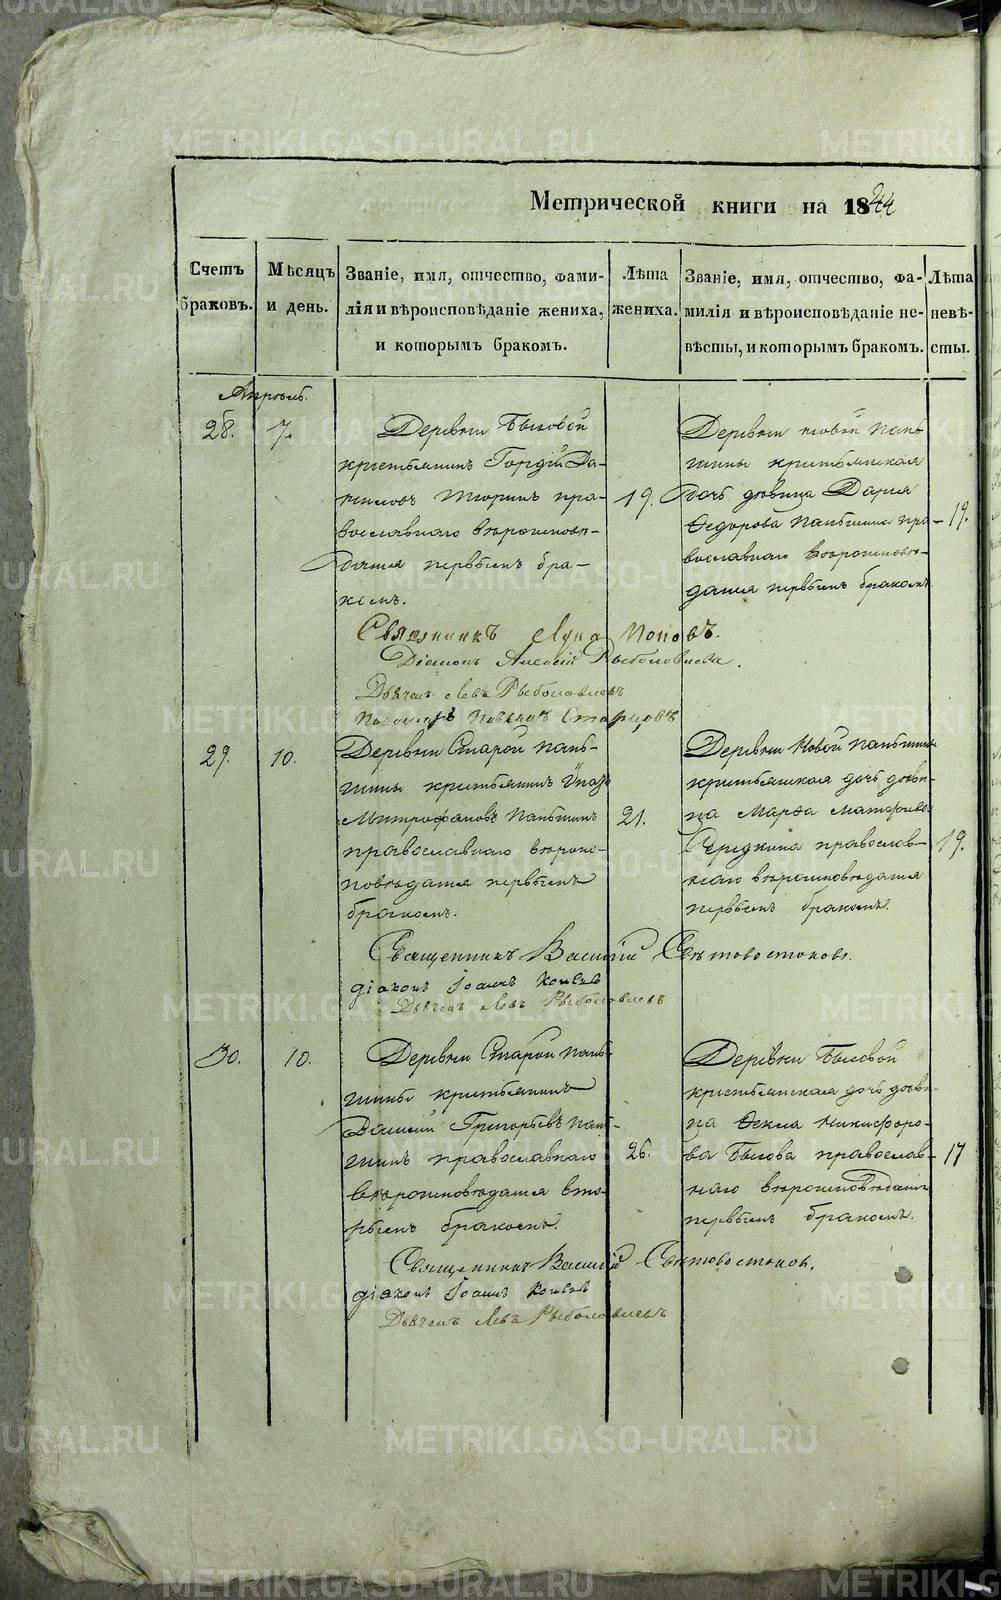 Метрической книги на 1844
Счетъ браковъ.
Мѣсяцъ и день.
Званіе, имя, отчество, фами-
лія и вѣроисповѣданіе жениха,
и которымъ бракомъ.
Лѣта жениха.
Званіе, имя, отчество, фа-
милія и вѣроисповѣданіе не-
вѣсты, и которымъ бракомъ.
Лѣта невѣ-
сты.
Апрѣль.
28.
7.
Деревни Быковой
крестьянинъ Гордѣй Да-
ниловъ Тюринъ пра-
вославнаго вѣроисповѣ-
данія первымъ бра-
комъ.
19.
Деревни новой пань-
шины крестьянская
дочь дѣвица Дарья
Ѳедорова Паньшина пра-
вославнаго вѣроисповѣ-
данія первымъ бракомъ
19.
Священникъ Лука Поповъ.
Діаконъ Алексій Рыболовлевъ.
Дьячекъ Левъ Рыболовлевъ
Пономарь Старцовъ
29.
10.
Деревни Старой пань-
шины крестьянинъ
Митрофановъ Паньшинъ
православнаго вѣроис-
повѣданія первымъ
бракомъ.
21.
Деревни Новой паньшины
крестьянская дочь дѣви-
ца Марѳа Матѳѣева
православ-
наго вѣроисповѣданія
первымъ бракомъ.
19.
Священникъ Василій Свѣтовостоковъ.
діаконъ Іоаннъ
Дьячекъ Левъ Рыболовлевъ
30.
10.
Деревни Старой пань-
шины крестьянинъ
Василій Григорьевъ пань-
шинъ православнаго
вѣроисповѣданія вто-
рымъ бракомъ.
26.
Деревни Быковой
крестьянская дочь дѣви-
ца Ѳекла Никифоро-
ва Быкова православ-
наго вѣроисповѣданія
первымъ бракомъ.
17
Священникъ Василій Свѣтовостоковъ.
діаконъ Іоаннъ
Дьячекъ Левъ Рыболовлевъ
METRIKI.GASO-URAL.RU